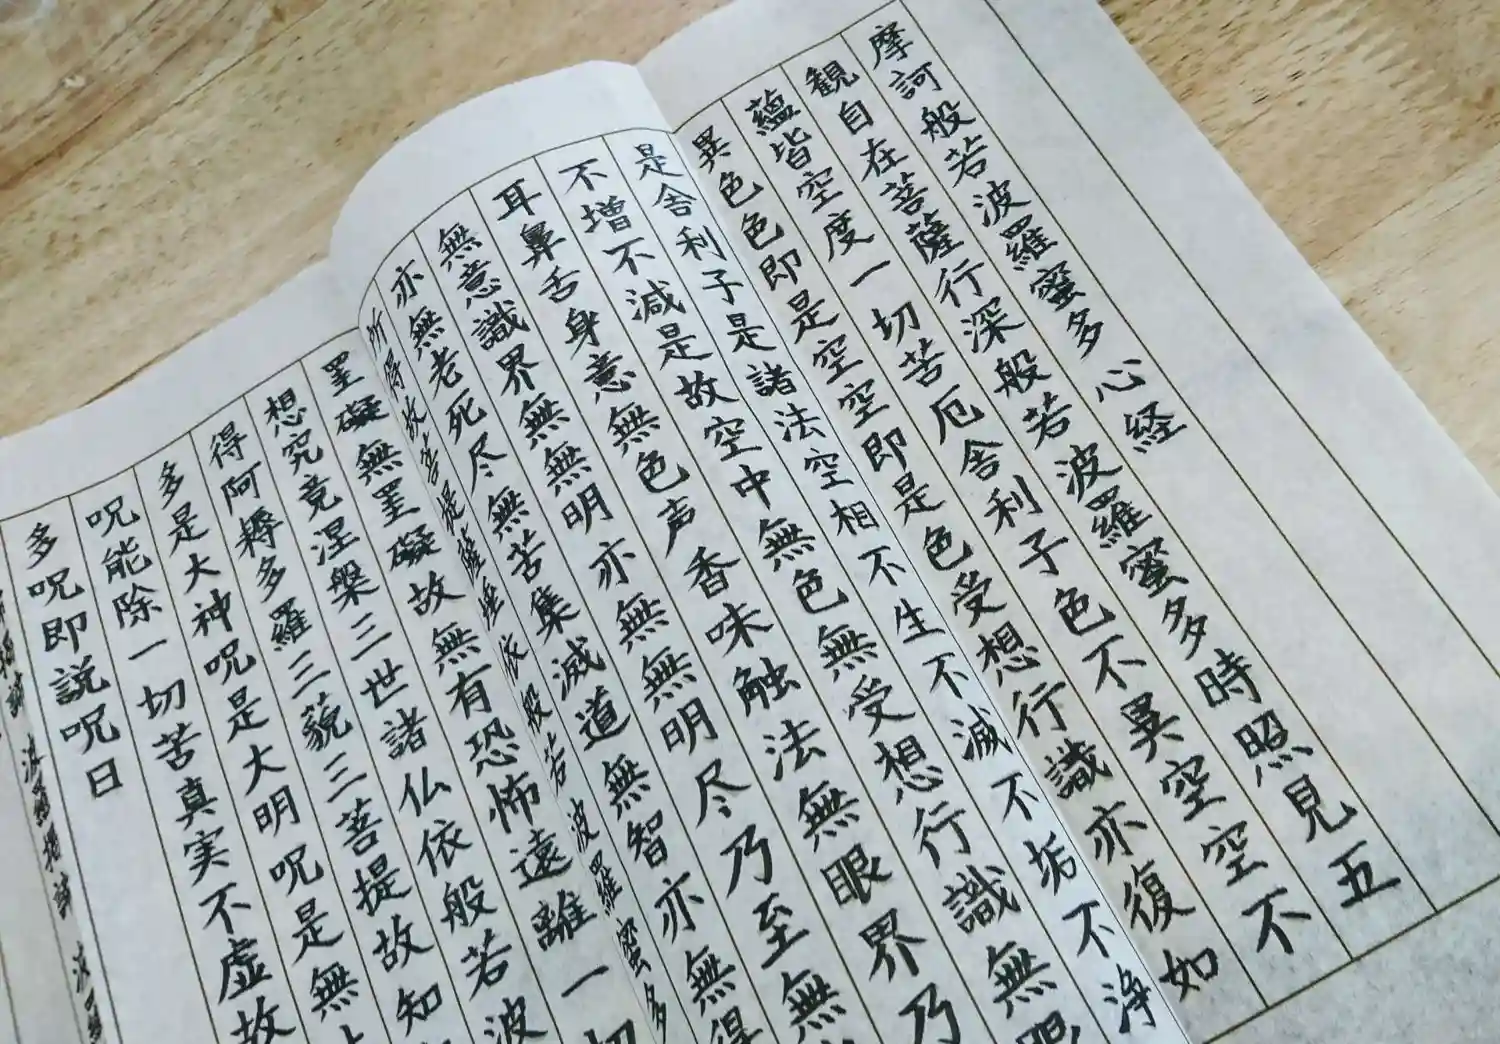 摩訶般若波羅蜜多心経
観自在菩薩行深般若波羅蜜多時照見五
蘊皆空度一切苦厄舎利子色不異空空不
異色色即是空空即是色受想行識亦復如
是舎利子是諸法空相不生不滅不垢不浄
不増不減是故空中無色無受想行識無眼
耳鼻舌身意無色声香味触法無眼界乃
無意識界無無明亦無無明尽乃至無
亦無老死尽無苦集滅道無智亦無得
所得故菩提薩埵依般若波羅蜜多
罣礙無罣礙故無有恐怖遠離一切
想究竟涅槃三世諸仏依般若波
得阿耨多羅三藐三菩提故知
多是大神呪是大明呪是無
呪能除一切苦真実不虚故
多呪即説呪曰
羯諦 波羅羯諦 波羅